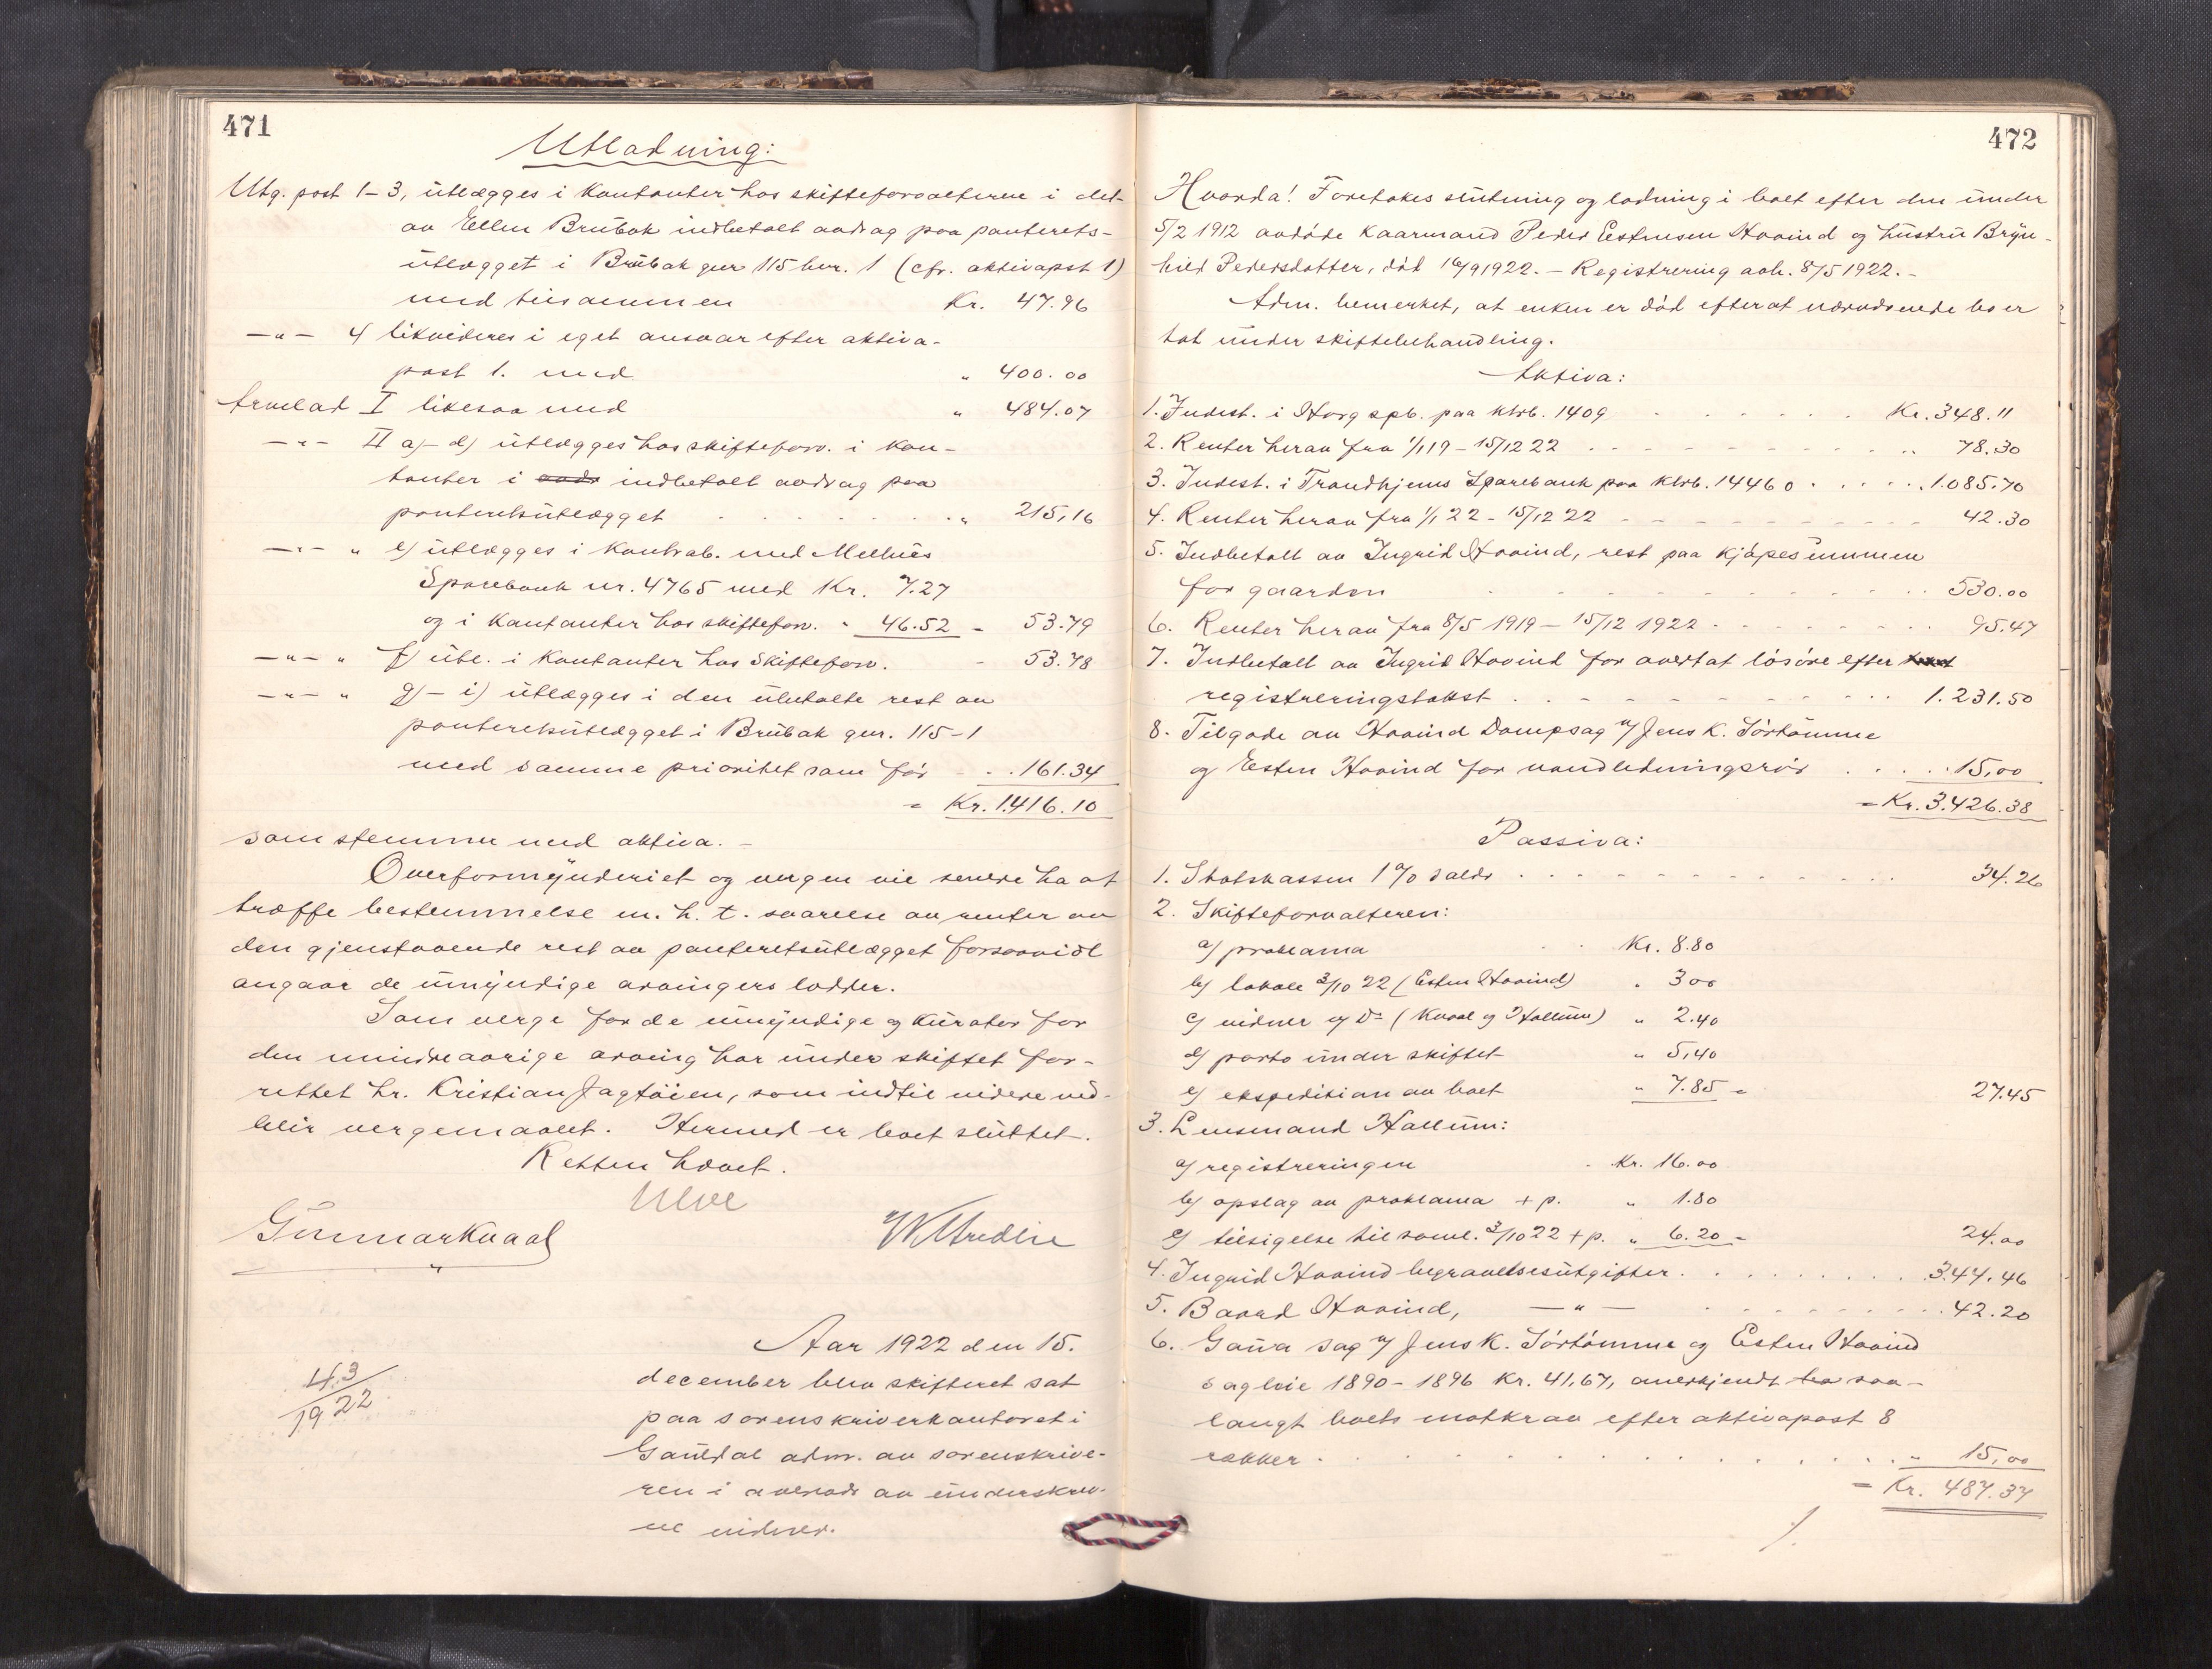 471
Utlodning:
Utg. post 1–3, utlægges i kontanter hos skifteforvalteren i det
av Ellen Brubak indbetalt avdrag paa panterets-
utlægget i Brubak gnr 115 bnr. 1 (cfr. aktivapst 1)
med tilsammen Kr. 47.96
—"— 4 likvideres i eget ansvar efter aktiva-
post 1. med " 400.00
Arvelod I likesaa med " 484.07
—"— II a)–d) utlægges hos skifteforv. i kon-
tanter i indbetalt avdrag paa
panteretsutlægget " 215,16
—"— " e) utlægges i kontrab. med Melhus
Sparebank nr. 4765 med Kr. 7.27
og i kontanter hos skifteforv. " 46.52 = 53.79
—"— " f) utl. i kontanter hos skifteforv. - 53.78
—"— " g)–i) utlægges i den ubetalte rest av
panteretsutlægget i Brubak gnr. 115–1
med samme prioritet som før . . 161.34
= Kr. 1416.10
som stemmer med aktiva. –
Overformynderiet og vergen vil senere ha at
træffe bestemmelse m. h. t. svarelse av renter av
den gjenstaaende rest av panteretsutlægget forsaavidt
angaar de umyndige arvingers lodder.
Som verge for de umyndige og kurator for
den mindreaarige arving har under skiftet for-
rettet hr. Kristian Jagtøien, som indtil videre ved-
blir vergemaalet. Hermed er boet sluttet.
Retten hævet.
Ulve
Gunnar Kvaal
Aar 1922 den 15.
43/1922
december blev skifteret sat
paa sorenskriverkontoret i
Gauldal adm. av sorenskrive-
ren i overvær av underskrev-
ne vidner.
472
Hvorda! Foretokes slutning og lodning i boet efter den under
5/2 1912 avdøde kaarmand Peder Estensen Hovind og hustru Bryn-
hild Pedersdatter, død 16/9 1922. – Registrering avh. 8/5 1922. –
Adm. bemerket, at enken er død efterat nærværende bo er
tat under skiftebehandling.
Aktiva:
1. Indest. i Horg spb. paa ktrb. 1409 Kr. 348.11
2. Renter herav fra 1/1 19 – 15/12 22 " 78.30
3. Indest. i Trondhjems Sparebank paa ktrb. 14460 1.085.70
4. Renter herav fra 1/1 22 – 15/12 22 42.30
5. Indbetalt av Ingrid Hovind, rest paa kjøpesummen
for gaarden 530.00
6. Renter herav fra 8/5 1919 – 15/12 1922 95.47
7. Indbetalt av Ingrid Hovind for overtat løsøre efter
registreringstakst 1.231.50
8. Tilgode av Hovind Dampsag v/ Jens K. Sørtømme
og Esten Hovind for vandledningsrør 15,00
= Kr. 3.426.38
Passiva:
1. Statskassen 1 % saldo 34.26
2. Skifteforvalteren:
a) proklama Kr. 8.80
b) lokale 3/10 22 (Esten Hovind) " 3.00
c) vidner og Do (Kvaal og Hallum) " 2.40
d) porto under skiftet " 5,40
e) ekspedition av boet " 7.85 = 27.45
3. Lensmand Hallum:
a) registreringen Kr. 16.00
b) opslag av proklama + p. " 1.80
c) tilsigelse til saml. 3/10 22 + p. " 6.20 = 24.00
4. Ingrid Hovind begravelsesutgifter 344.46
5. Baard Hovind, —"— 42.20
6. Gaua sag v/ Jens K. Sørtømme og Esten Hovind
sagleie 1890–1896 Kr. 41,67, anerkjendt saa-
langt boets motkrav efter aktivapost 8
rækker " 15,00
= Kr. 487.37
/.